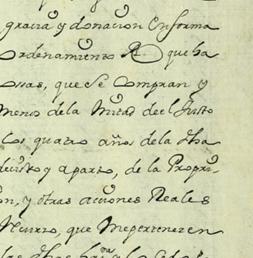 gracia y donacion En forma
ordenamiento Rl que ha
cosas, que Se Compran y
menos dela Mitad del Justo
los quatro años dela dha
desisto y aparto, de la Propri
on, y otras acciones Reales
que me pertenecen en